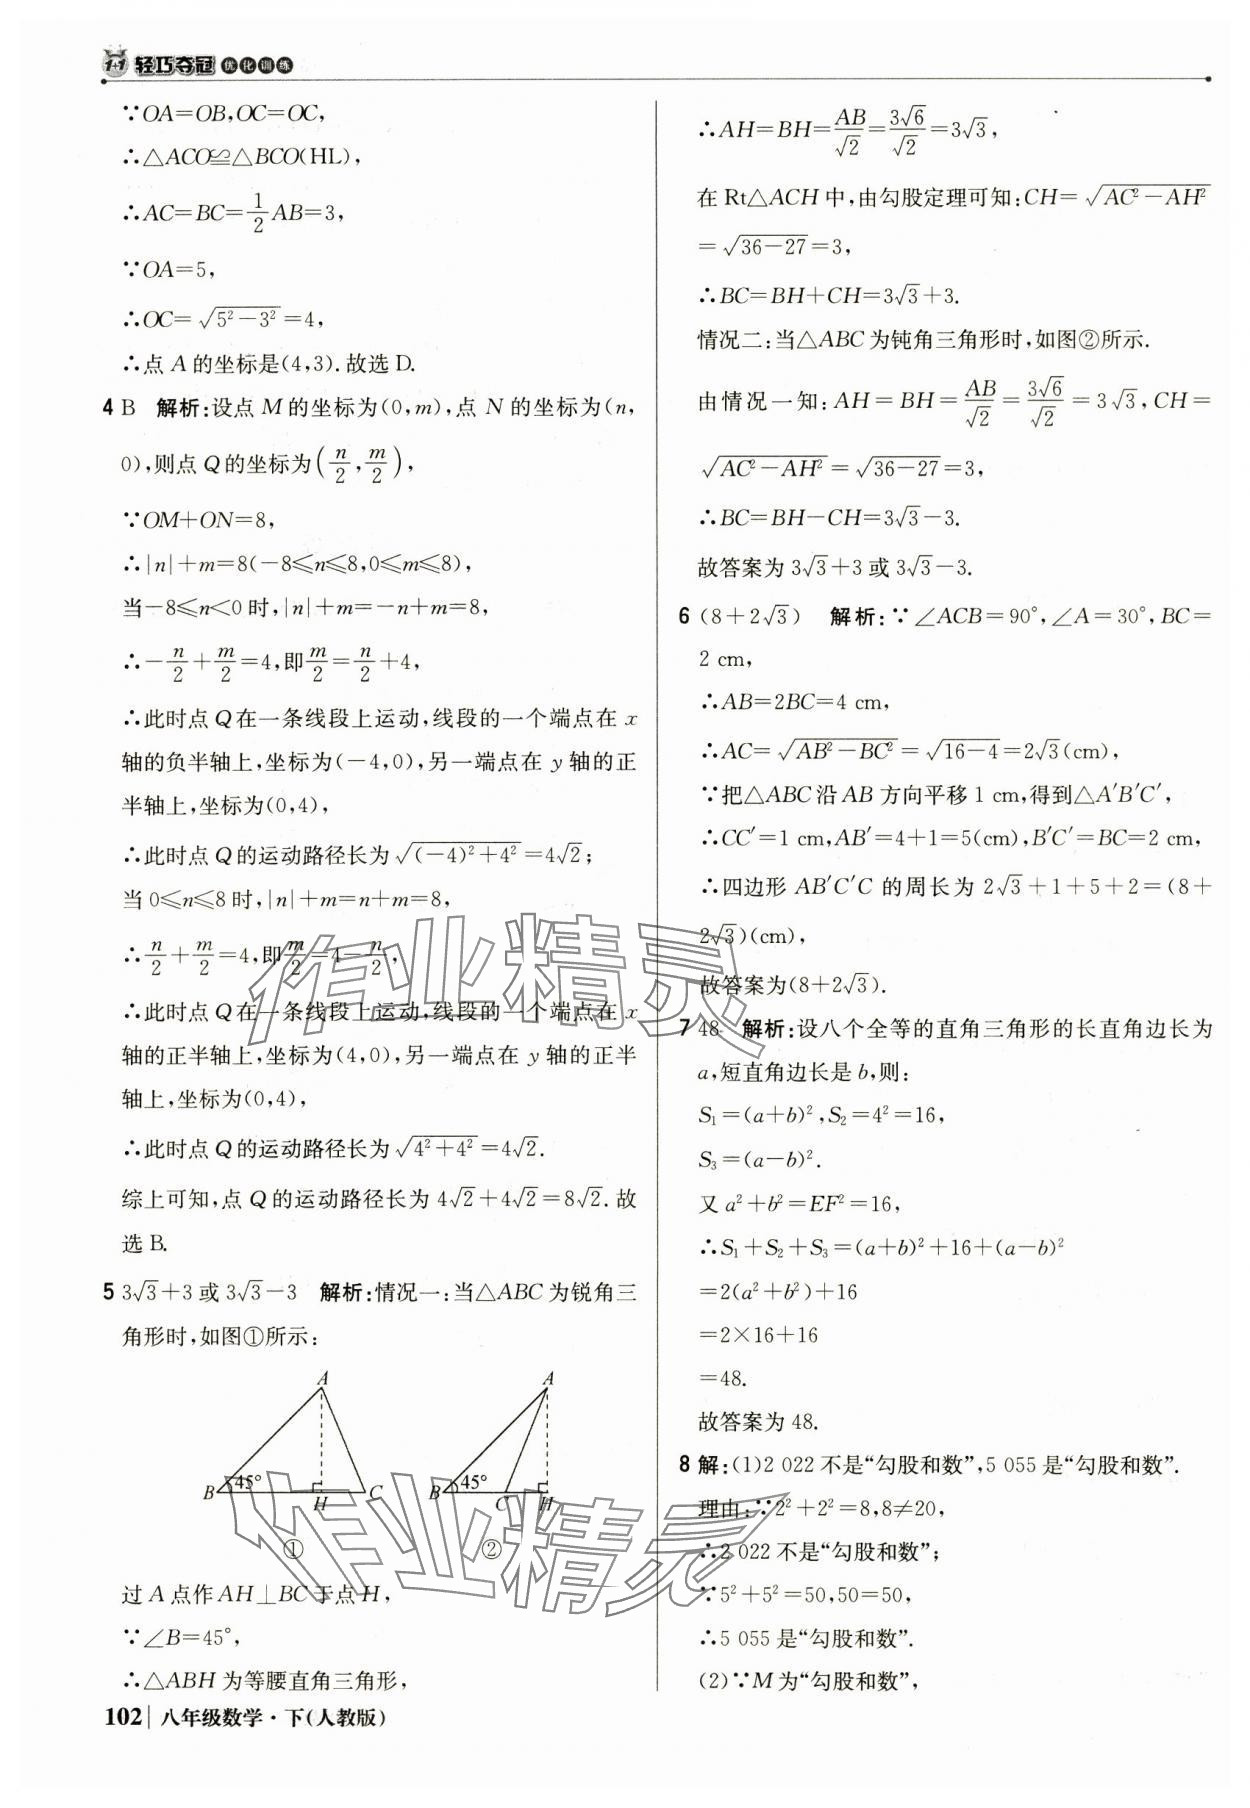 1+1 轻巧夺冠 优化训练
∵OA=OB,OC=OC,
∴△ACO≌△BCO(HL),
∴AC=BC=1/2AB=3,
∵OA=5,
∴OC=√(5²-3²)=4,
∴点 A 的坐标是(4,3).故选 D.
4 B 解析:设点 M 的坐标为(0,m),点 N 的坐标为(n,
0),则点 Q 的坐标为(n/2,m/2),
∵OM+ON=8,
∴|n|+m=8(-8≤n≤8,0≤m≤8),
当-8≤n<0 时,|n|+m=-n+m=8,
∴-n/2+m/2=4,即m/2=n/2+4,
∴此时点 Q 在一条线段上运动,线段的一个端点在 x
轴的负半轴上,坐标为(-4,0),另一端点在 y 轴的正
半轴上,坐标为(0,4),
∴此时点 Q 的运动路径长为√((-4)²+4²)=4√2;
当 0≤n≤8 时,|n|+m=n+m=8,
∴n/2+m/2=4,即m/2=4-n/2,
∴此时点 Q 在一条线段上运动,线段的一个端点在 x
轴的正半轴上,坐标为(4,0),另一端点在 y 轴的正半
轴上,坐标为(0,4),
∴此时点 Q 的运动路径长为√(4²+4²)=4√2.
综上可知,点 Q 的运动路径长为 4√2+4√2=8√2.故
选 B.
5 3√3+3 或 3√3-3 解析:情况一:当△ABC 为锐角三
角形时,如图①所示:
A
B 45° H C
①
A
B 45° C H
②
过 A 点作 AH⊥BC 于点 H,
∵∠B=45°,
∴△ABH 为等腰直角三角形,
∴AH=BH=AB/√2=3√6/√2=3√3,
在 Rt△ACH 中,由勾股定理可知:CH=√(AC²-AH²)
=√(36-27)=3,
∴BC=BH+CH=3√3+3.
情况二:当△ABC 为钝角三角形时,如图②所示.
由情况一知:AH=BH=AB/√2=3√6/√2=3√3,CH=
√(AC²-AH²)=√(36-27)=3,
∴BC=BH-CH=3√3-3.
故答案为 3√3+3 或 3√3-3.
6 (8+2√3) 解析:∵∠ACB=90°,∠A=30°,BC=
2 cm,
∴AB=2BC=4 cm,
∴AC=√(AB²-BC²)=√(16-4)=2√3(cm),
∵把△ABC 沿 AB 方向平移 1 cm,得到△A′B′C′,
∴CC′=1 cm,AB′=4+1=5(cm),B′C′=BC=2 cm,
∴四边形 AB′C′C 的周长为 2√3+1+5+2=(8+
2√3)(cm),
故答案为(8+2√3).
7 48 解析:设八个全等的直角三角形的长直角边长为
a,短直角边长是 b,则:
S₁=(a+b)²,S₂=4²=16,
S₃=(a-b)².
又 a²+b²=EF²=16,
∴S₁+S₂+S₃=(a+b)²+16+(a-b)²
=2(a²+b²)+16
=2×16+16
=48.
故答案为 48.
8 解:(1)2 022 不是“勾股和数”,5 055 是“勾股和数”.
理由:∵2²+2²=8,8≠20,
∴2 022 不是“勾股和数”;
∵5²+5²=50,50=50,
∴5 055 是“勾股和数”.
(2)∵M 为“勾股和数”,
作业精灵
作业精灵
102 八年级数学·下(人教版)